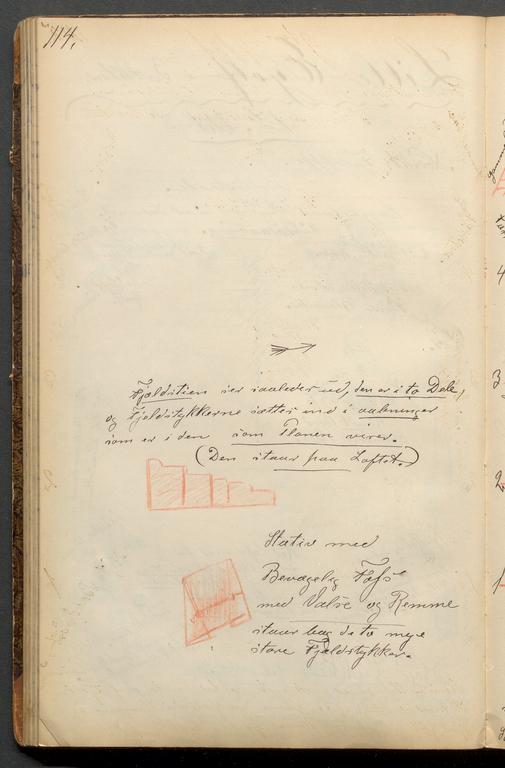 114.
Fjeldstien ser saaledes ud, den er i to Dele,
og Fjeldstykkerne sættes ind i aabninger
som er i den som Planen viser.
(Den staar paa Loftet.)
Stativ med
Bevægelig Fofs
med Valse og Remme
staar bag de to nye
store Fjeldstykker.